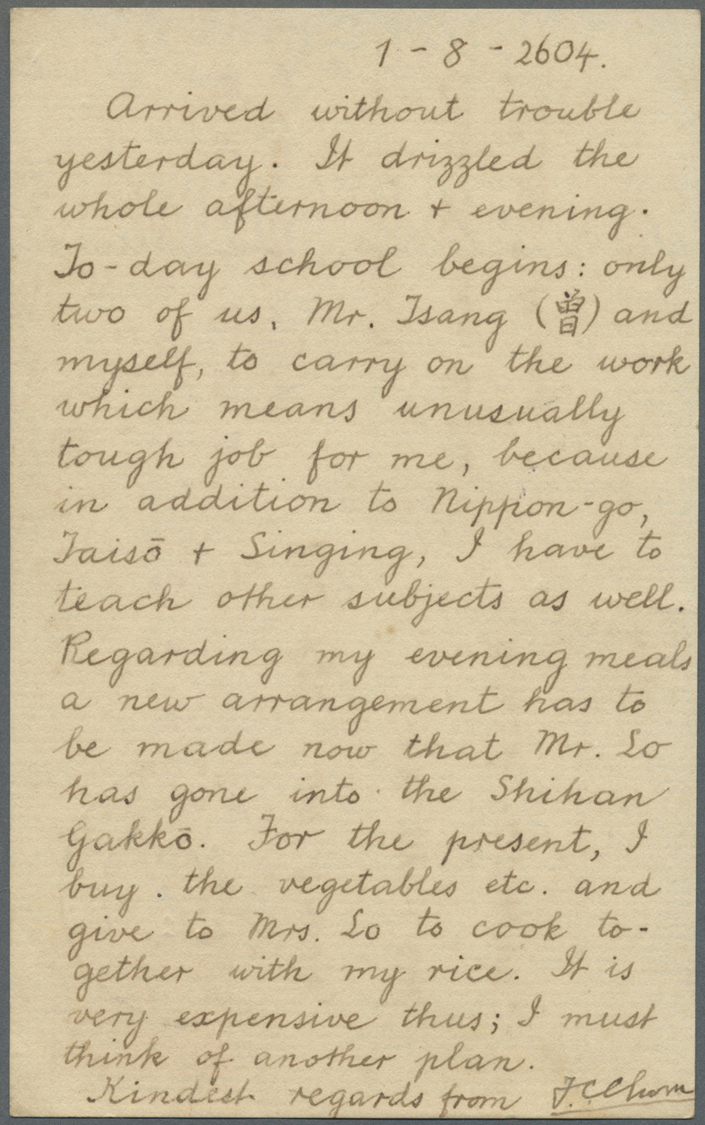 1 - 8 - 2604.
Arrived without trouble
yesterday. It drizzled the
whole afternoon + evening.
To-day school begins: only
two of us, Mr. Tsang (曽) and
myself, to carry on the work
which means unusually
tough job for me, because
in addition to Nippon-go,
Taisō + Singing, I have to
teach other subjects as well.
Regarding my evening meals
a new arrangement has to
be made now that Mr. Lo
has gone into the Shihan
Gakkō. For the present, I
buy the vegetables etc. and
give to Mrs. Lo to cook to-
gether with my rice. It is
very expensive thus; I must
think of another plan.
Kindest regards from